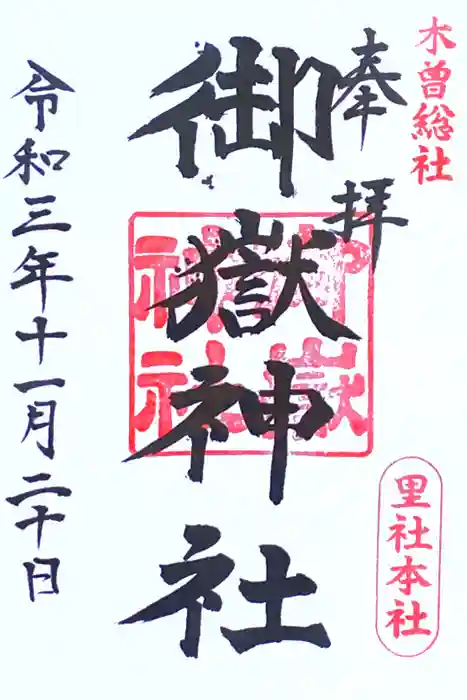 木曽総社
奉拝
御嶽神社
御嶽神社
里社本社
令和三年十一月二十日